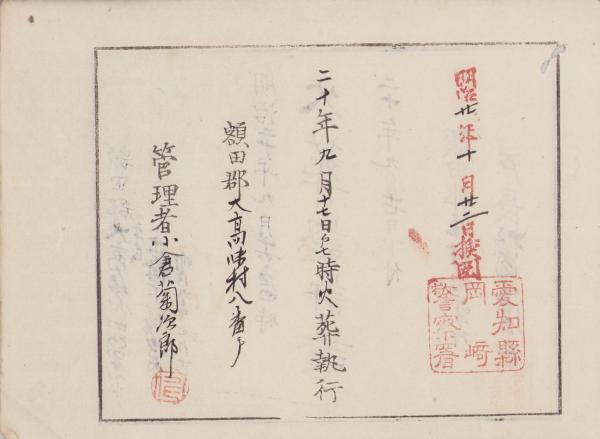 明治廿年十月廿二日検閲
愛知縣
岡崎
警察署
二十年九月十七日午后七時火葬執行
額田郡大高味村八番戸
管理者小倉菊次郎